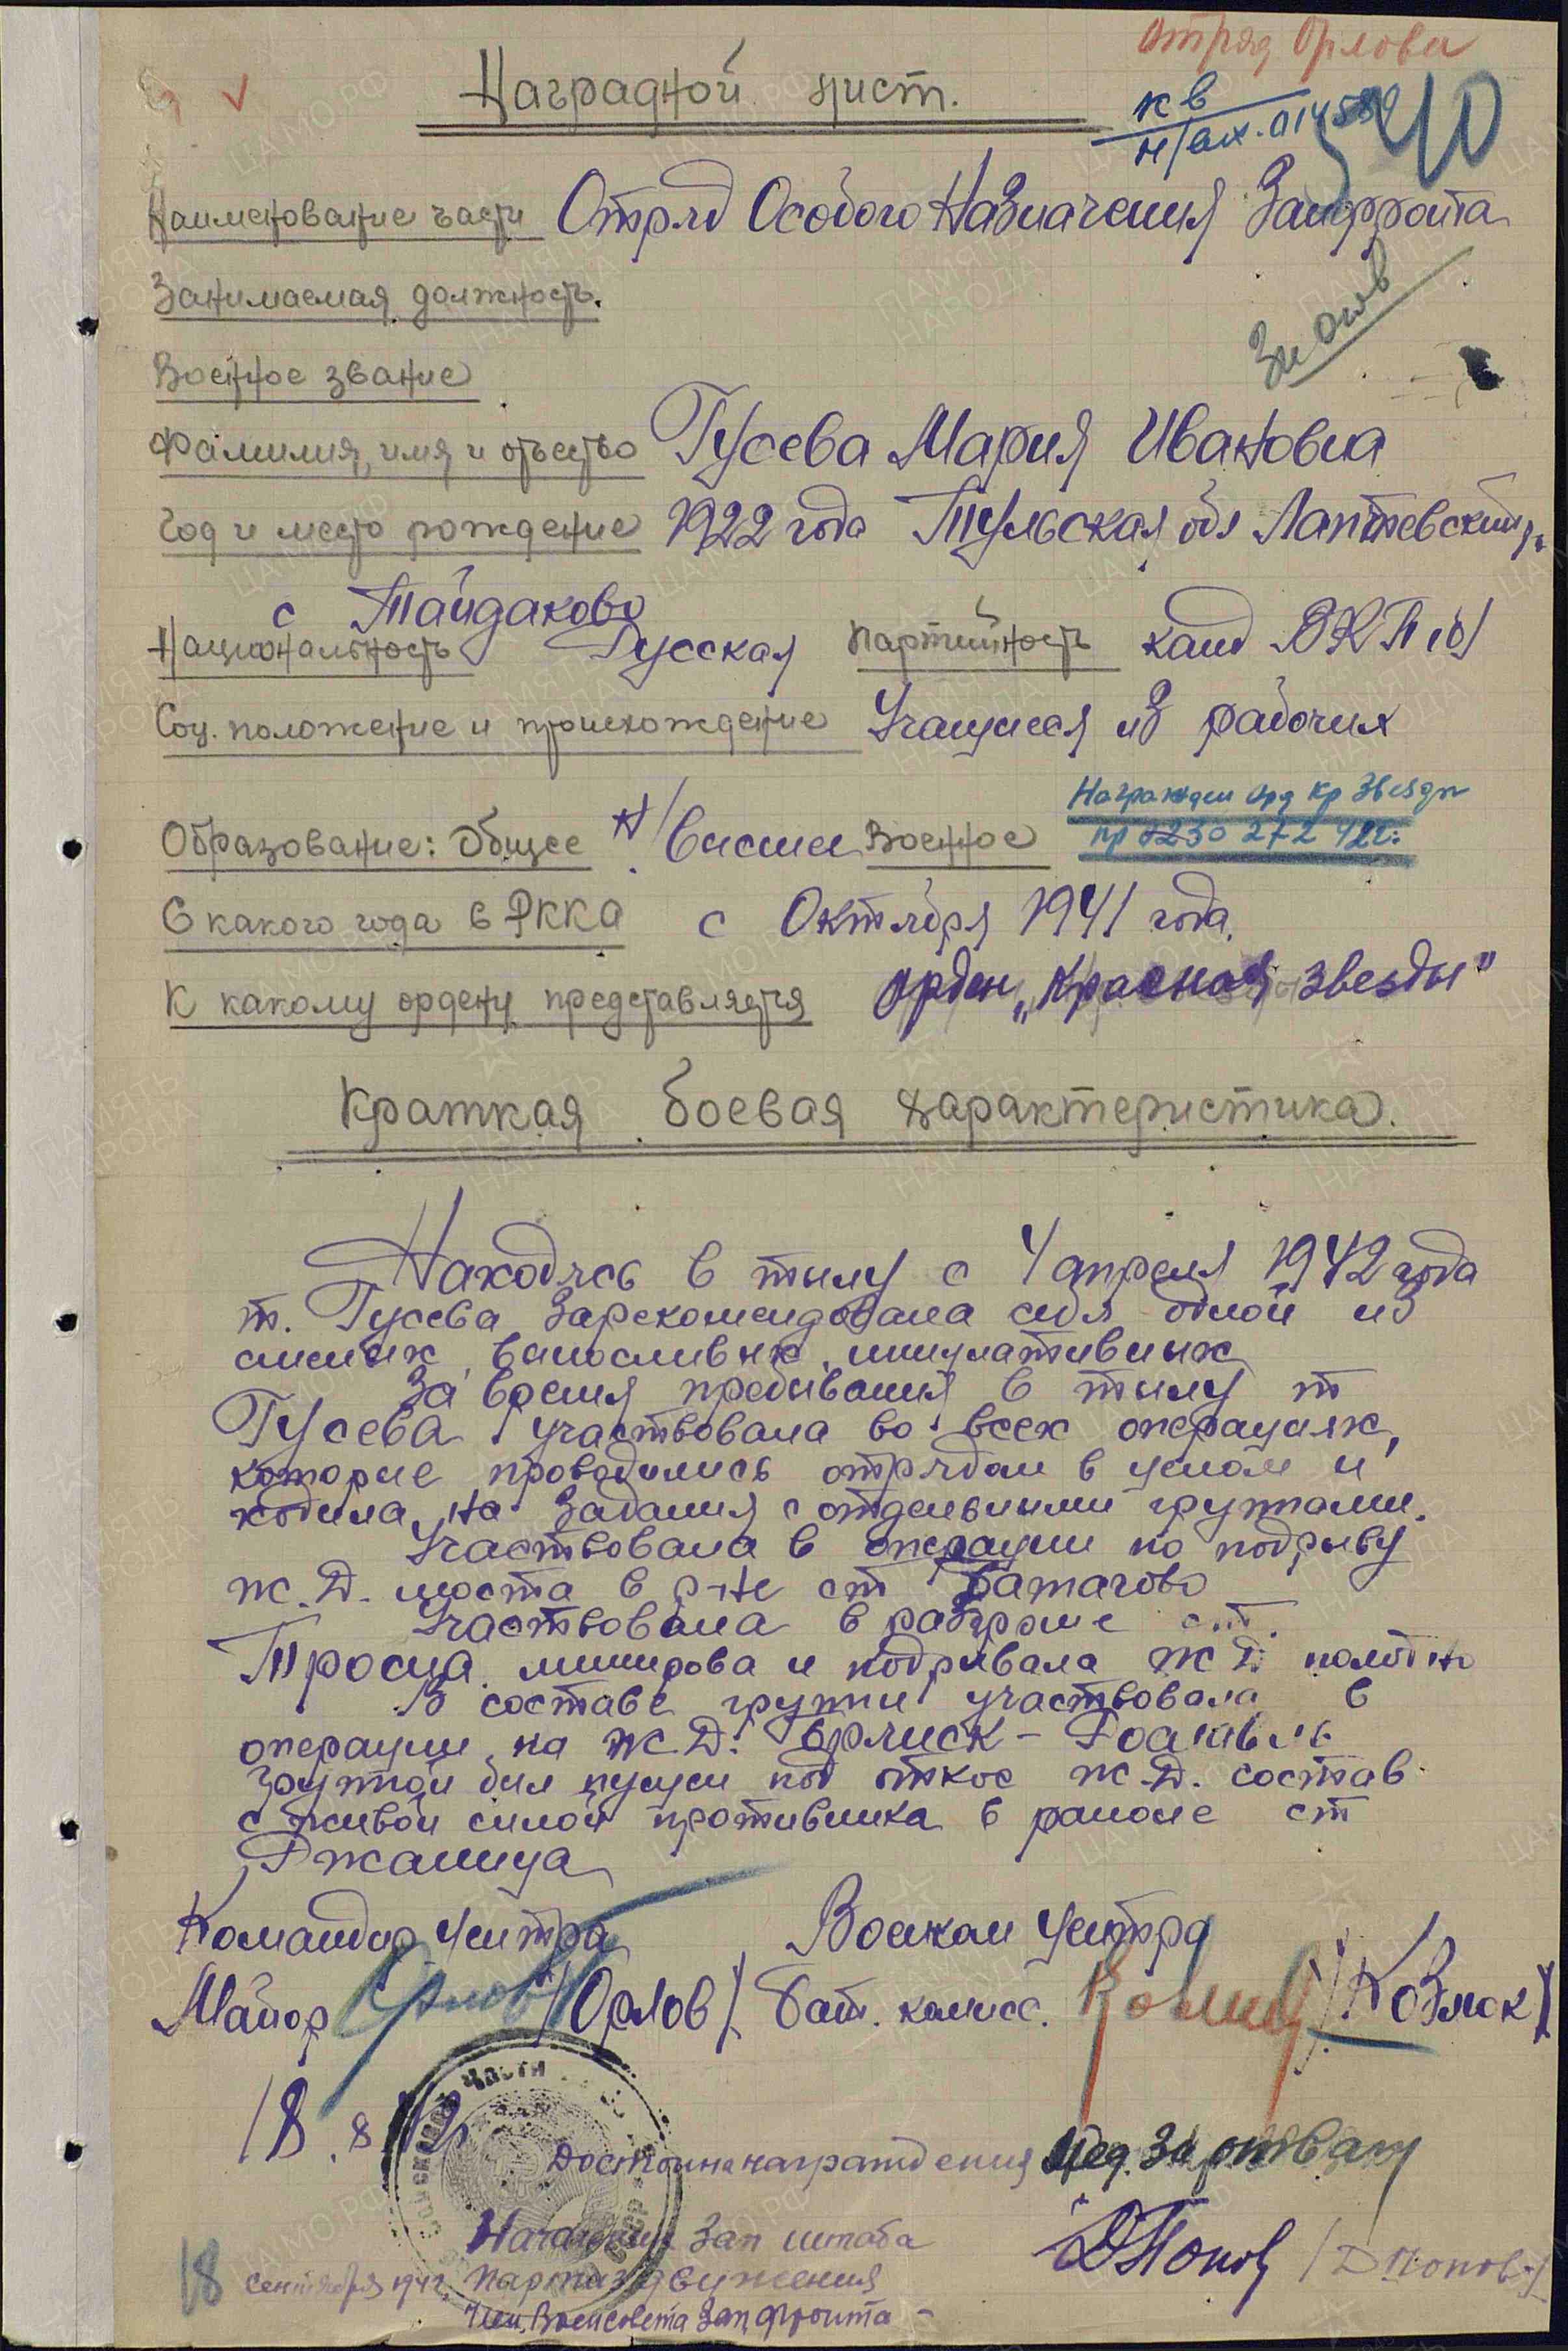 Отряд Орлова
Наградной лист.
кв
н/вх. 01458
40
Наименование части Отряд Особого Назначения Запфронта
Занимаемая должность.
За отв
Военное звание
Фамилия, имя и отчество Гусева Мария Ивановна
Год и место рождение 1922 года Тульская обл Лаптевский р.
с Тайдаково
Национальность Русская Партийность канд ВКП(б)
Соц. положение и происхождение Учащиеся из рабочих
Награжден орд Кр Звезды
Образование: Общее н/высшее Военное пр 0230 27 2 42г.
С какого года в РККА с Октября 1941 года.
К какому ордену представляется орден „Красная звезды"
Краткая боевая характеристика.
Находясь в тылу с 4 апреля 1942 года
т. Гусева зарекомендовала себя одной из
смелых, выносливых, инициативных
За время пребывания в тылу т
Гусева участвовала во всех операциях,
которые проводились отрядом в целом и
ходила на задания с отдельными группами.
Участвовала в операции по подрыву
ж.д. моста в р-не ст Батагово
Участвовала в разгроме ст.
Тросна минирова и подрывала ж д полотно
В составе группы участвовала в
операции на ж.д. Брянск – Рославль
группой был пущен под откос ж.д. состав
с живой силой противника в районе ст
Ржаница
Командир Центра Военком Центра
Майор Орлов /Орлов/ Бат. комисс. /Козлок/
18.8.42
Достойна награждения мед. За отвагу
Начальник Зап штаба
Партиз движения ДПопов /Д Попов/
18 сентября 1942г.
Член Военсовета Зап. Фронта –